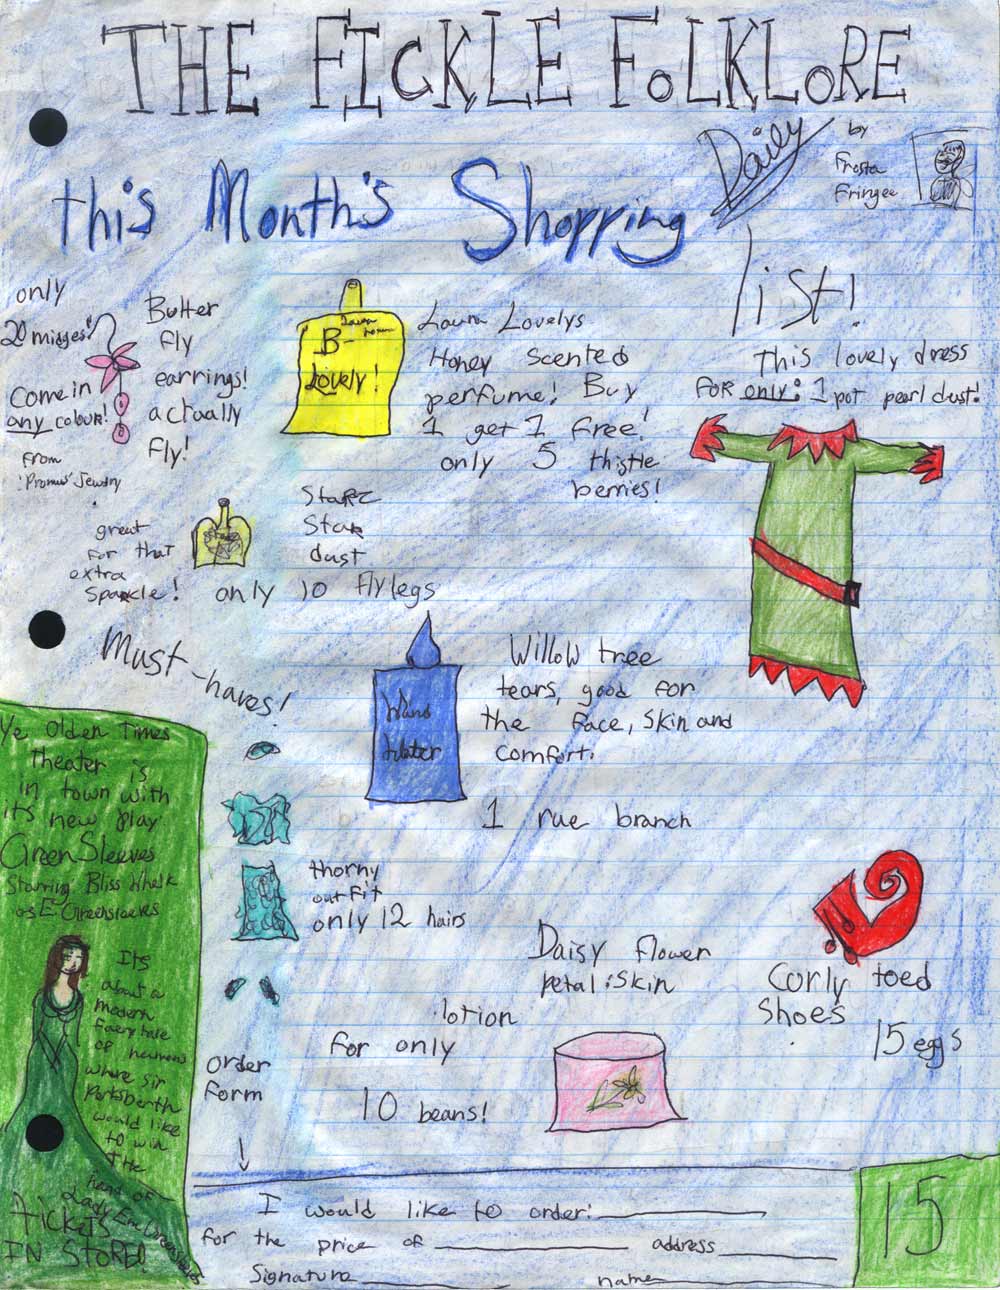 THE FICKLE FOLKLORE
Daily
by
Frosta
Fringee
this Month's Shopping
list!
only
20 midges!
Come in
any colour!
from
'Promus' Jewlry
Butter
fly
earrings!
actually
fly!
B-
Lovely!
Laura Lovelys
Honey scented
perfume! Buy
1 get 1 free!
only 5 thistle
berries!
This lovely dress
For only: 1 pot pearl dust!
great
for that
extra
sparkle!
Starz
Star
dust
only 10 flylegs
Must-haves!
Willow tree
tears, good for
the face, skin and
comfort.
1 rue branch
thorny
outfit
only 12 hairs
Daisy flower
petal skin
lotion
for only
10 beans!
Curly toed
shoes
15 eggs
Ye Olden Times
theater is
in town with
it's new play
Green Sleeves
Starring Bliss Whalk
as E Greensleeves
Its
about a
modern
faery tale
of humans
where sir
Portsberth
would like
to win
the
hand of
Lady Em Greensleeves
tickets
IN STORE!
order
form
I would like to order:
for the price of address
Signature name
15